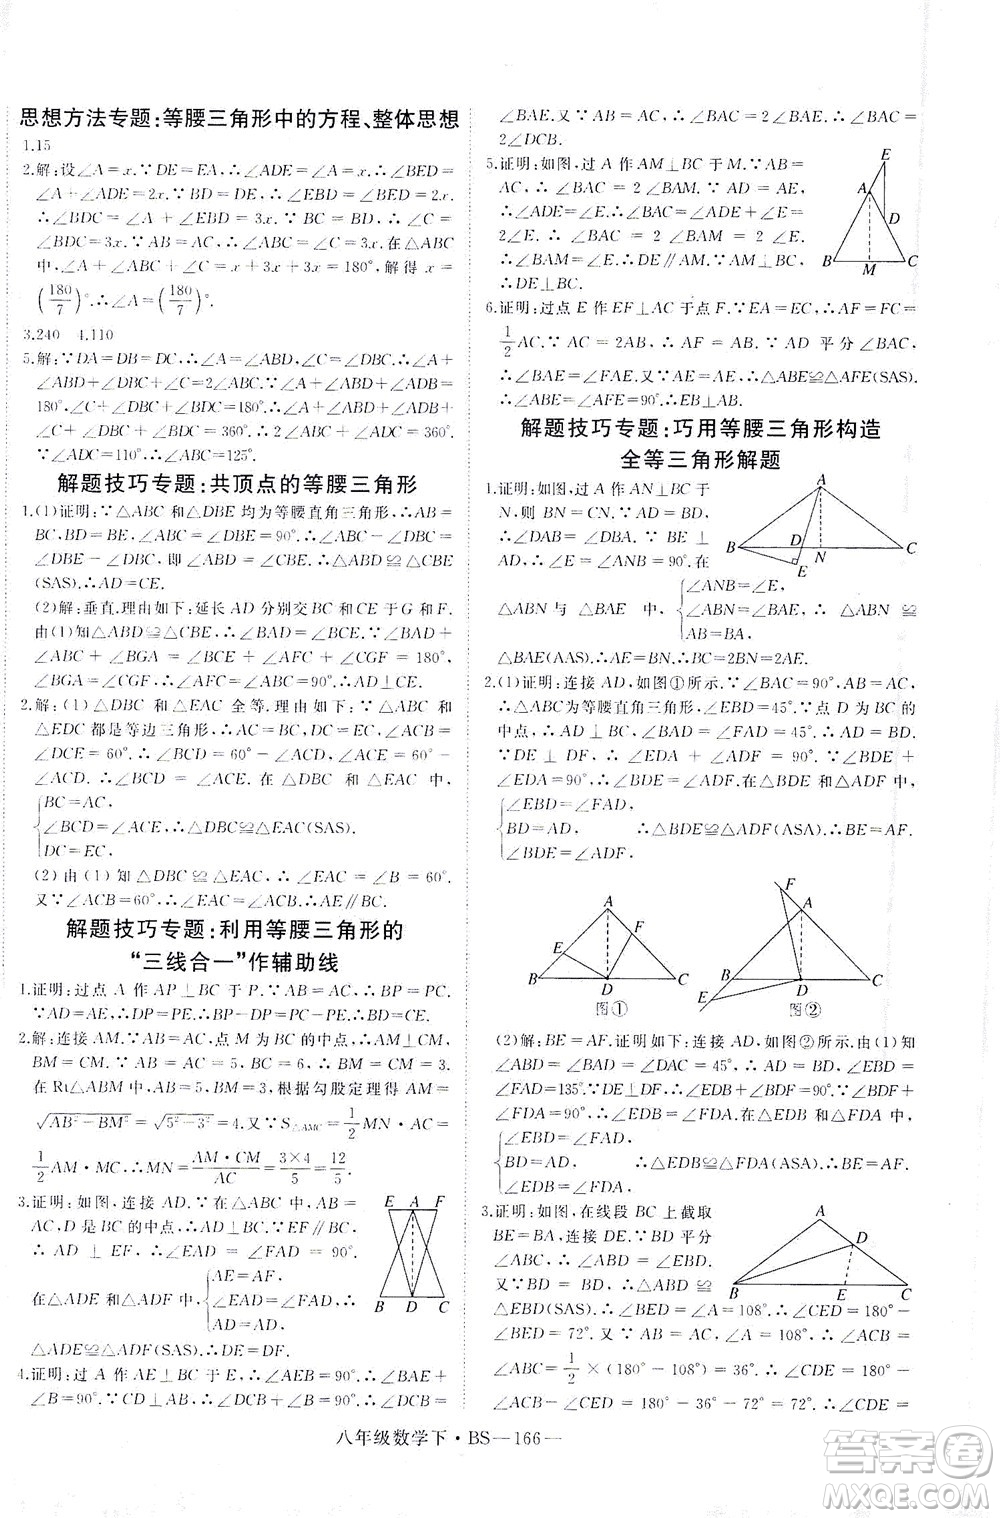 思想方法专题:等腰三角形中的方程、整体思想
1.15
2.解:设∠A=x.∵DE=EA,∴∠ADE=∠A=x.∴∠BED=
∠A+∠ADE=2x.∵BD=DE,∴∠EBD=∠BED=2x.
∴∠BDC=∠A+∠EBD=3x.∵BC=BD,∴∠C=
∠BDC=3x.∵AB=AC,∴∠ABC=∠C=3x.在△ABC
中,∠A+∠ABC+∠C=x+3x+3x=180°,解得x=
(180/7)°.∴∠A=(180/7)°.
3.240 4.110
5.解:∵DA=DB=DC,∴∠A=∠ABD,∠DBC=∠C.∴∠A+
∠ABD+∠DBC+∠C=2∠ABC.∵∠A+∠ABD+∠ADB=
180°,∠C+∠DBC+∠BDC=180°,∴∠A+∠ABD+∠ADB
+∠C+∠DBC+∠BDC=360°.∴2∠ABC+∠ADC=360°.
∵∠ADC=110°,∴∠ABC=125°.
解题技巧专题:共顶点的等腰三角形
1.(1)证明:∵△ABC和△DBE均为等腰直角三角形,∴AB=
BC,BD=BE,∠ABC=∠DBE=90°.∴∠ABC-∠DBC
=∠DBE-∠DBC,即∠ABD=∠CBE.∴△ABD≌△CBE
(SAS).∴AD=CE.
(2)解:垂直.理由如下:延长AD分别交BC和CE于G和F.
由(1)知△ABD≌△CBE,∴∠BAD=∠BCE.∵∠BAD+
∠ABC+∠BGA=∠BCE+∠AFC+∠CGF=180°,
∠BGA=∠CGF,∴∠AFC=∠ABC=90°.∴AD⊥CE.
2.解:(1)△DBC和△EAC全等.理由如下:∵△ABC和
△EDC都是等边三角形,∴AC=BC,DC=EC,∠ACB=60°,
∠DCE=60°.∴∠BCD=60°-∠ACD,∠ACE=60°-
∠ACD.∴∠BCD=∠ACE.在△DBC和△EAC中,
BC=AC,
∠BCD=∠ACE,∴△DBC≌△EAC(SAS).
DC=EC,
(2)由(1)知△DBC≌△EAC,∴∠EAC=∠B=60°.
又∵∠ACB=60°,∴∠EAC=∠ACB.∴AE∥BC.
解题技巧专题:利用等腰三角形的
“三线合一”作辅助线
1.证明:过点A作AP⊥BC于P.∵AB=AC,∴BP=PC.
∵AD=AE,∴DP=PE.∴BP-DP=PC-PE.∴BD=CE.
2.解:连接AM.∵AB=AC,点M为BC的中点,∴AM⊥CM,
BM=CM.∵AB=AC=5,BC=6,∴BM=CM=3.
在Rt△ABM中,AB=5,BM=3,根据勾股定理得AM=
√AB²-BM²=√5²-3²=4.又∵S△AMC=1/2MN·AC=
1/2AM·MC,∴MN=AM·CM/AC=3×4/5=12/5.
3.证明:如图,连接AD.∵在△ABC中,AB=
AC,D是BC的中点,∴AD⊥BC.∵EF∥BC,
∴AD⊥EF,∴∠EAD=∠FAD=90°.
在△ADE和△ADF中,
AE=AF,
∠EAD=∠FAD,
AD=AD,
∴△ADE≌△ADF(SAS).∴DE=DF.
E A F
B D C
4.证明:过A作AE⊥BC于E,则∠AEB=90°,∴∠BAE
+∠B=90°.∵CD⊥AB,∴∠BDC=90°,∴∠DCB+∠B=
∠BAE.又∵AB=AC,∴∠BAC=2∠BAE.∴∠BAC=
2∠DCB.
5.证明:如图,过A作AM⊥BC于M.∵AB=
AC,∴∠BAC=2∠BAM.∵AD=AE,
∴∠ADE=∠E.∴∠BAC=∠ADE+∠E=
2∠E.∴∠BAC=2∠BAM=2∠E.
∴∠BAM=∠E.∴DE∥AM.∵AM⊥BC,
∴DE⊥BC.
E
A
D
B M C
6.证明:过点E作EF⊥AC于点F.∵EA=EC,∴AF=FC=
1/2AC.∵AC=2AB,∴AF=AB.∵AD平分∠BAC,
∴∠BAE=∠FAE.又∵AE=AE,∴△ABE≌△AFE(SAS).
∴∠ABE=∠AFE=90°.∴EB⊥AB.
解题技巧专题:巧用等腰三角形构造
全等三角形解题
1.证明:如图,过A作AN⊥BC于
N,则BN=CN.∵AB=AC,
∴∠DAB=∠DBA.∵BE⊥
AD,∴∠E=∠ANB=90°.在
△ABN与△BAE中,
∠ANB=∠E,
∠ABN=∠BAE,∴
AB=BA,
△ABN≌△BAE(AAS).∴BN=AE.∴BC=2BN=2AE.
A
B D N C
E
2.(1)证明:连接AD,如图①所示.∵∠BAC=90°,AB=AC,
∴△ABC为等腰直角三角形,∠EBD=45°.∵点D为BC的
中点,∴AD⊥BC,∠FAD=∠BAD=45°.∴AD=BD.
∵DE⊥DF,∴∠EDA+∠ADF=90°.又∵∠BDE+
∠EDA=90°,∴∠BDE=∠ADF.在△BDE和△ADF中,
∠EBD=∠FAD,
BD=AD,
∠BDE=∠ADF,
∴△BDE≌△ADF(ASA).∴BE=AF.
A
E F
B D C
图①
F
A
B D C
E
图②
(2)解:BE=AF.证明如下:连接AD,如图②所示.由(1)知
∠ABD=∠BAD=∠DAC=45°,AD=BD.∴∠EBD=
∠FAD=135°.∵∠EDB+∠BDF=90°,∠BDF+
∠FDA=90°,∴∠EDB=∠FDA.在△EDB和△FDA中,
∠EBD=∠FAD,
BD=AD,
∠EDB=∠FDA,
∴△EDB≌△FDA(ASA).∴BE=AF.
3.证明:如图,在线段BC上截取
BE=BA,连接DE.∵BD平分
∠ABC,∴∠ABD=∠EBD.
又∵BD=BD,∴△ABD≌
△EBD(SAS).∴∠BED=∠A=108°.∴∠CED=180°-
∠BED=72°.又∵AB=AC,∠A=108°,∴∠ACB=
∠ABC=1/2×(180°-108°)=36°.∴∠CDE=180°-
∠ACB-∠CED=180°-36°-72°=72°.∴∠CDE=
A
D
B E C
八年级数学下·BS—166—
答案圈
MXQE.COM